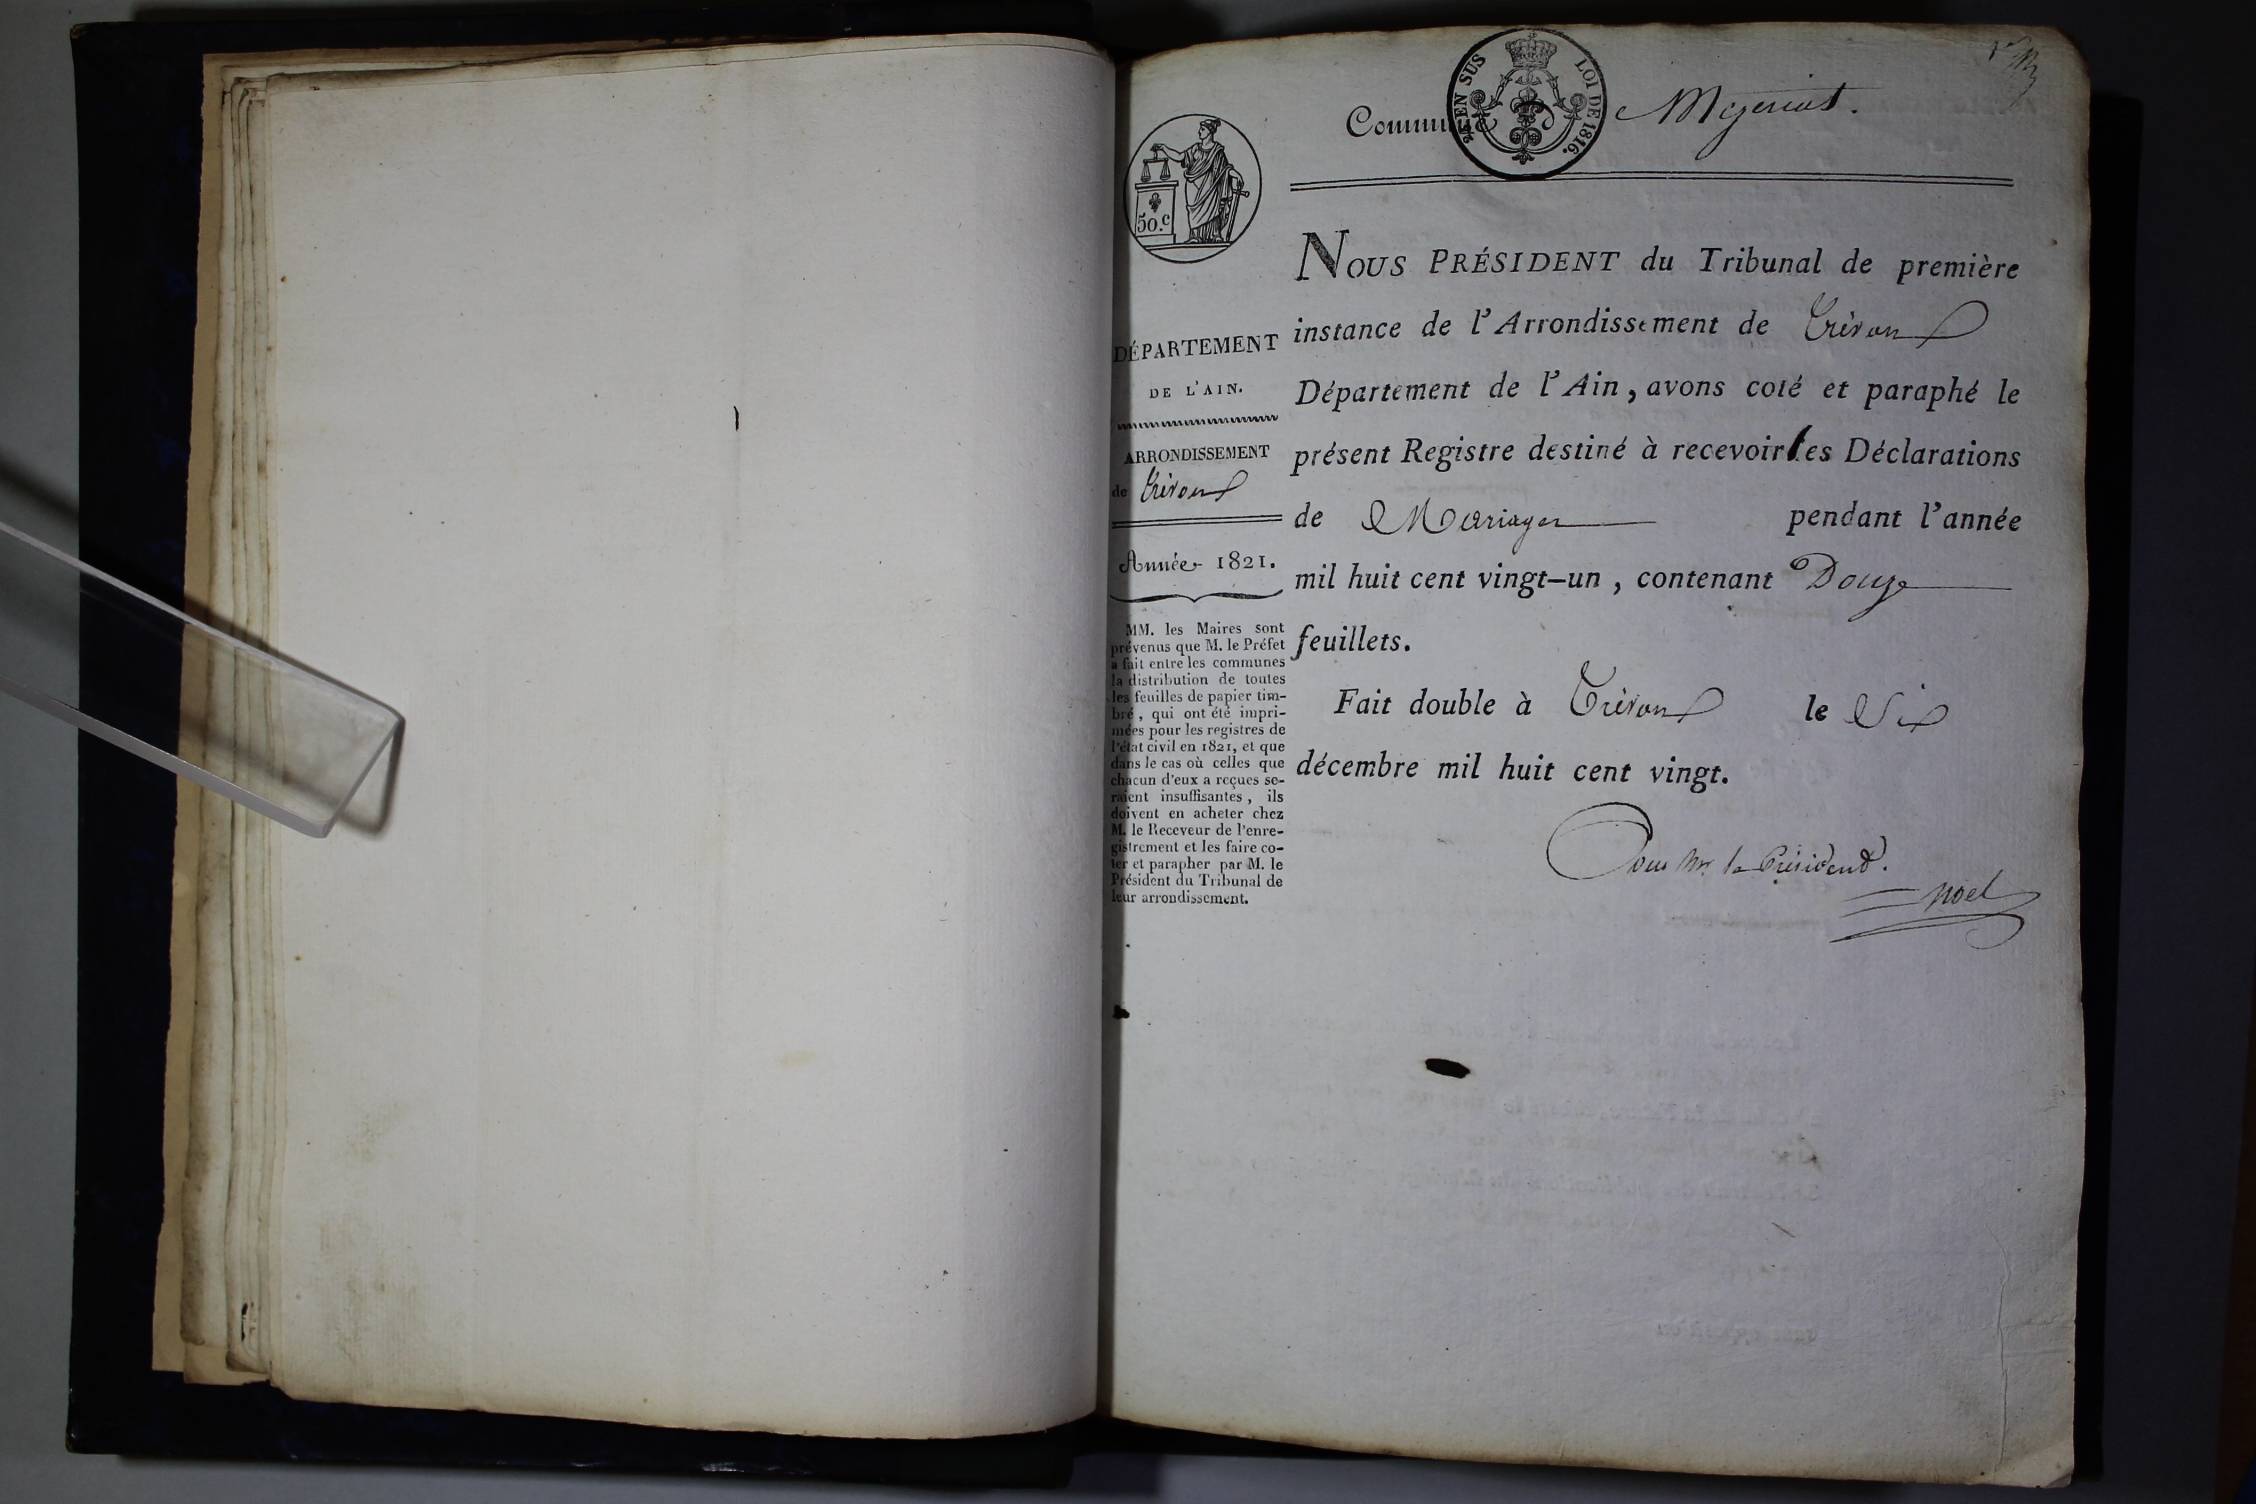 1er
Commune de Mezeriat.
2.C EN SUS
LOI DE 1816.
50.c
DÉPARTEMENT
DE L'AIN.
ARRONDISSEMENT
de Trévoux
Année 1821.
MM. les Maires sont
prévenus que M. le Préfet
a fait entre les communes
la distribution de toutes
les feuilles de papier tim-
bré, qui ont été impri-
mées pour les registres de
l'état civil en 1821, et que
dans le cas où celles que
chacun d'eux a reçues se-
raient insuffisantes, ils
doivent en acheter chez
M. le Receveur de l'enre-
gistrement et les faire co-
ter et parapher par M. le
Président du Tribunal de
leur arrondissement.
NOUS PRÉSIDENT du Tribunal de première
instance de l'Arrondissement de Trévoux
Département de l'Ain, avons coté et paraphé le
présent Registre destiné à recevoir les Déclarations
de Mariages pendant l'année
mil huit cent vingt-un, contenant Douze
feuillets.
Fait double à Trévoux le Six
décembre mil huit cent vingt.
Pour Mr. le Président.
Noel